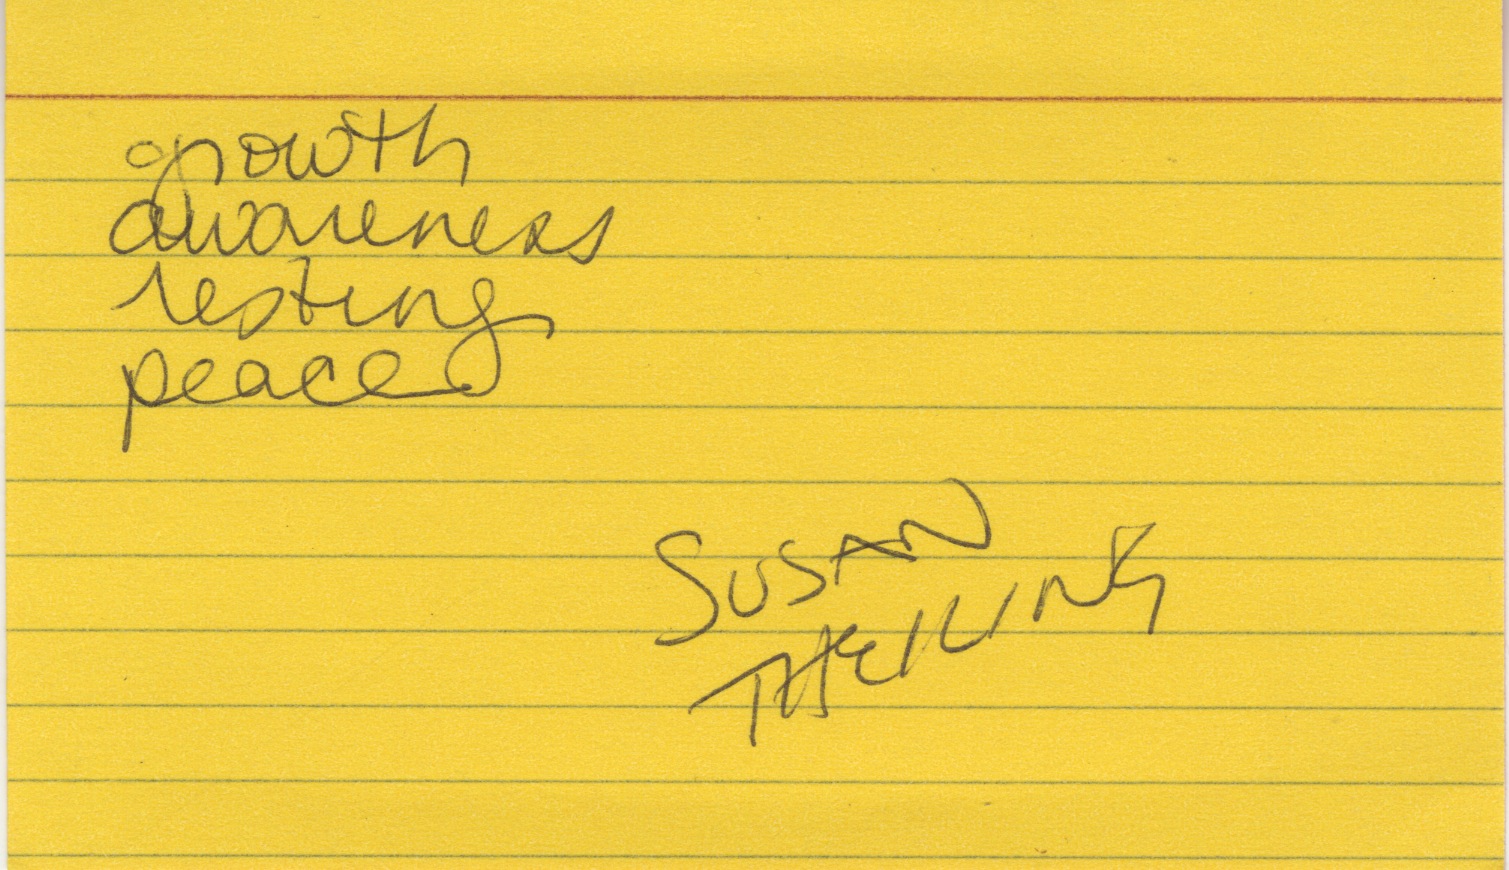 growth
awareness
resting
peace
SUSAN
THEILING